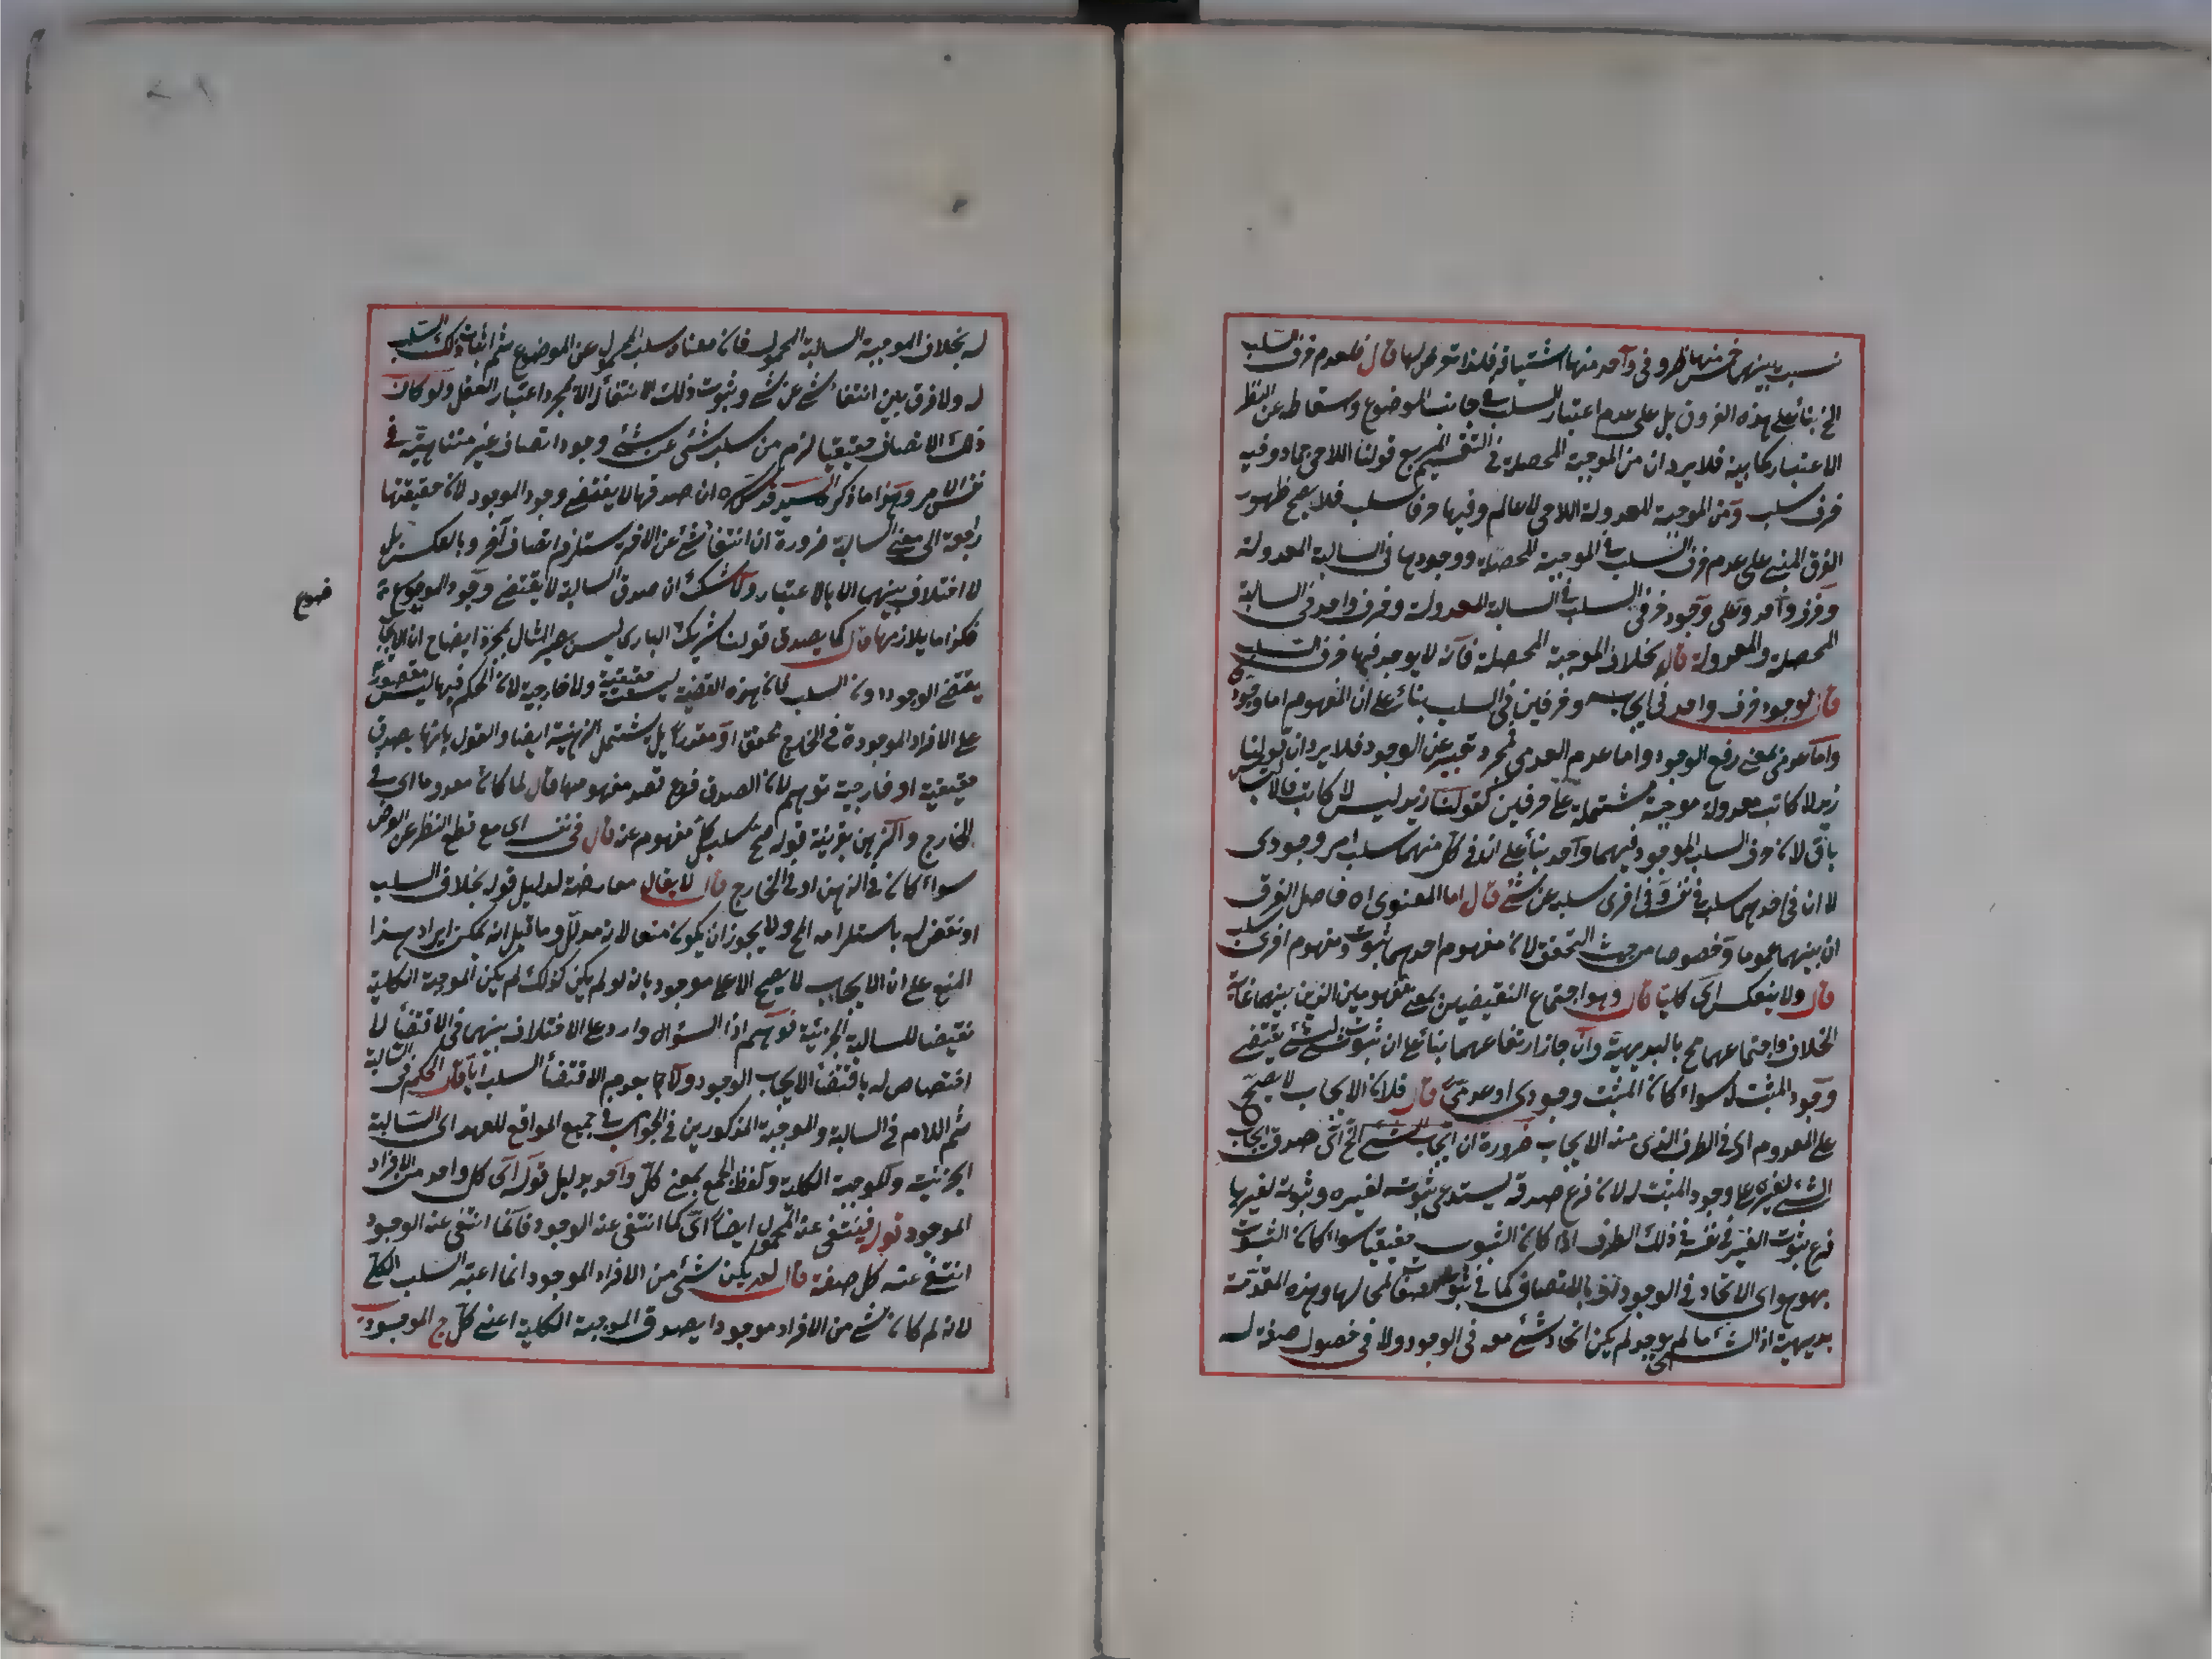 نسب بينهما خمس منها ظرو في وآحد منها اشتباه فلذا تعرض لها قال فلعدم حرف السلب
الخ بنائه على هذه الفروق بل على عدم اعتبار السلب في جانب الموضوع وسقاطه عن النظر
الاعتبار كما بينه فلا يرد ان من الموجبة المحصلة في التقسيم المربع قولنا اللاحي جماد وفيه
حرف سلب ومن الموجبة المعدولة اللاحي لا عالم وفيها حرفا سلب فلا يصح ظهور
الفرق المبني على عدم حرف السلب في الموجبة المحصلة ووجودها في السالبة المعدولة
وحرف وآحد وعلى وجود حرفي السلب في السالبة المعدولة وحرف واحد في السالبة
المحصلة والمعدولة قال بخلاف الموجبة المحصلة فانه لا يوجد فيها حرف السلب
قال لوجود حرف واحد في ايجاب وحرفين في السلب بنائه على ان المفهوم اما وجودي
واما عدمي بمعنى رفع الوجود واما عدم العدمي فمجرد تعبير عن الوجود فلا يرد ان قولنا
زيد لا كاتب معدولة موجبة مشتملة على حرفين كقولنا زيد ليس لا كاتب فالالتباس
باق لان حرف السلب الموجود فيهما وآحد بناء على ان في كل منهما سلب امر وجودي
لا ان في احدهما سلب في نفسه وفي اخرى سلبه عن شئ قال اما المعنوي اه حاصل الفرق
ان بينهما عموما وخصوصا من جهت التحقق لان مفهوم احدهما ثبوت ومفهوم اخرى سلب
قال ولا ينعكس اي كليا قال وهو اجتماع النقيضين بمعنى مفهومين الذين بينهما غاية
الخلاف واجتماعهما مح بالبديهية وان جاز ارتفاعهما بنائه على ان ثبوت شئ لشئ يقتضي
وجود المثبت له سواء كان المثبت وجودي او عدمي قال فلان الايجاب لا يصح
على المعدوم اي في الطرف الذي منه الايجاب ضرورة ان ايجاب الشئ الخ اي صدق ايجاب
الشئ لغيره على وجود المثبت له لان فرع صدقه يستدعي ثبوته لغيره وثبوته لغيرها
فرع ثبوت الغير في نفسه في ذلك الطرف اذا كان الثبوت حقيقيا سواء كان الثبوت
بهو هو اي الاتحاد في الوجود او بالاتصاف كما في ثبوت الصفة لمحالها وهذه المقدمة
بديهية اذ الشئ ما لم يوجد لم يكن اتحاد شئ معه في الوجود ولا في حصول صفة له
له بخلاف الموجبة السالبة المحمول فان معناه سلب المحمول عن الموضوع ثم اثبات ذلك السلب
له ولا فرق بين انتفاء شئ عن شئ وثبوت ذلك الانتفاء الا بمجرد اعتبار العقل ولو كان
ذلك الاتصاف حقيقيا لزم من سلب شئ عن شئ وجود اتصاف غير متناهية في
نفس الامر وهذا ما ذكر السيد قدس سره ان صدقها لا يقتضي وجود الموجود لان حقيقتها
راجعة الى معنى السالبة ضرورة ان انتفاء شئ عن الاخر يستلزم اتصاف آخر وبالعكس بل
لا اختلاف بينهما الا بالاعتبار ولا شك ان صدق السالبة لا يقتضي وجود الموضوع
فكذا ما يلازمها قال كما يصدق قولنا شريك الباري ليس ببصير المثال لمجرد ايضاح ان الايجاب
يقتضي الوجود دون السلب لان هذه القضية ليست حقيقية ولا خارجية لان الحكم فيها ليس مقصور
على الافراد الموجودة في الخارج محققا او مقدرا بل يشتمل الذهنية ايضا والقول بانها يصدق
حقيقية او خارجية توهم لان الصدق فرع قصد مفهومها قال لما كان معدوما اي في
الخارج والذهن بقرينة قوله صح سلب كل مفهوم عنه قال في نفسه اي مع قطع النظر عن الفرض
سواء كان في الذهن او في الخارج قال لا يقال معارضة لدليل قوله بخلاف السلب
او نقض له باستلزامه المح ولا يجوز ان يكون منعا لانه مدلل وما قيل انه يمكن ايراد هذا
المنع على ان الايجاب لا يصح الا على موجود بانه لو لم يكن كذلك لم يكن الموجبة الكلية
نقيضا للسالبة الجزئية توهم اذا السؤال وارد على الاختلاف بينهما في الاقتضاء لا
اختصاص له باقتضاء الايجاب الوجود ولا بعدم الاقتضاء السلب اياه قال الحكم في السالبة
ثم اللام في السالبة والموجبة المذكورين في الجواب في جميع المواقع للعهد اي السالبة
الجزئية والموجبة الكلية ولفظ الجمع بمعنى كل وآحد بدليل قوله اي كل واحد من الافراد
الموجود قوله فينتفي عنه المحمول ايضا اي كما انتفى عنه الوجود فانما انتفى عنه الوجود
انتفى عنه كل صفة قال لم يكن شئ من الافراد الموجود انما اعتبر السلب الكلي
لانه لم كان شئ من الافراد موجودا يصدق الموجبة الكلية اعني كل ج الموجود
ضوع